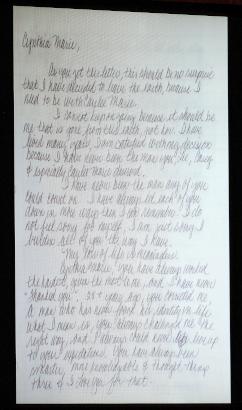 Cynthia Marie,
As you get this letter, this should be no surprise
that I have decided to leave the earth, because I
need to be with Caylee Marie.
I cannot keep on going because it should be
me that is gone from this earth, not her. I have
lived many years, I am satisfied with my decision
because I have never been the man you, Lee, Casey
& especially Caylee Marie deserved.
I have never been the man any of you
could count on. I have always let each of you
down in more ways than I can remember. I do
not feel sorry for myself, I am just sorry I
burden all of you the way I have.
My loss of life is meaningless.
Cynthia Marie, you have always worked
the hardest, given the most to me, and I have never
"Thanked you". 28+ years ago, you corrected me
a man who has now found his identity in life.
What I mean is, you always challenged me the
right way, and I always could never live up
to your expectations. You have always been
smarter, more knowledgeable & thought things
through & I love you for that.